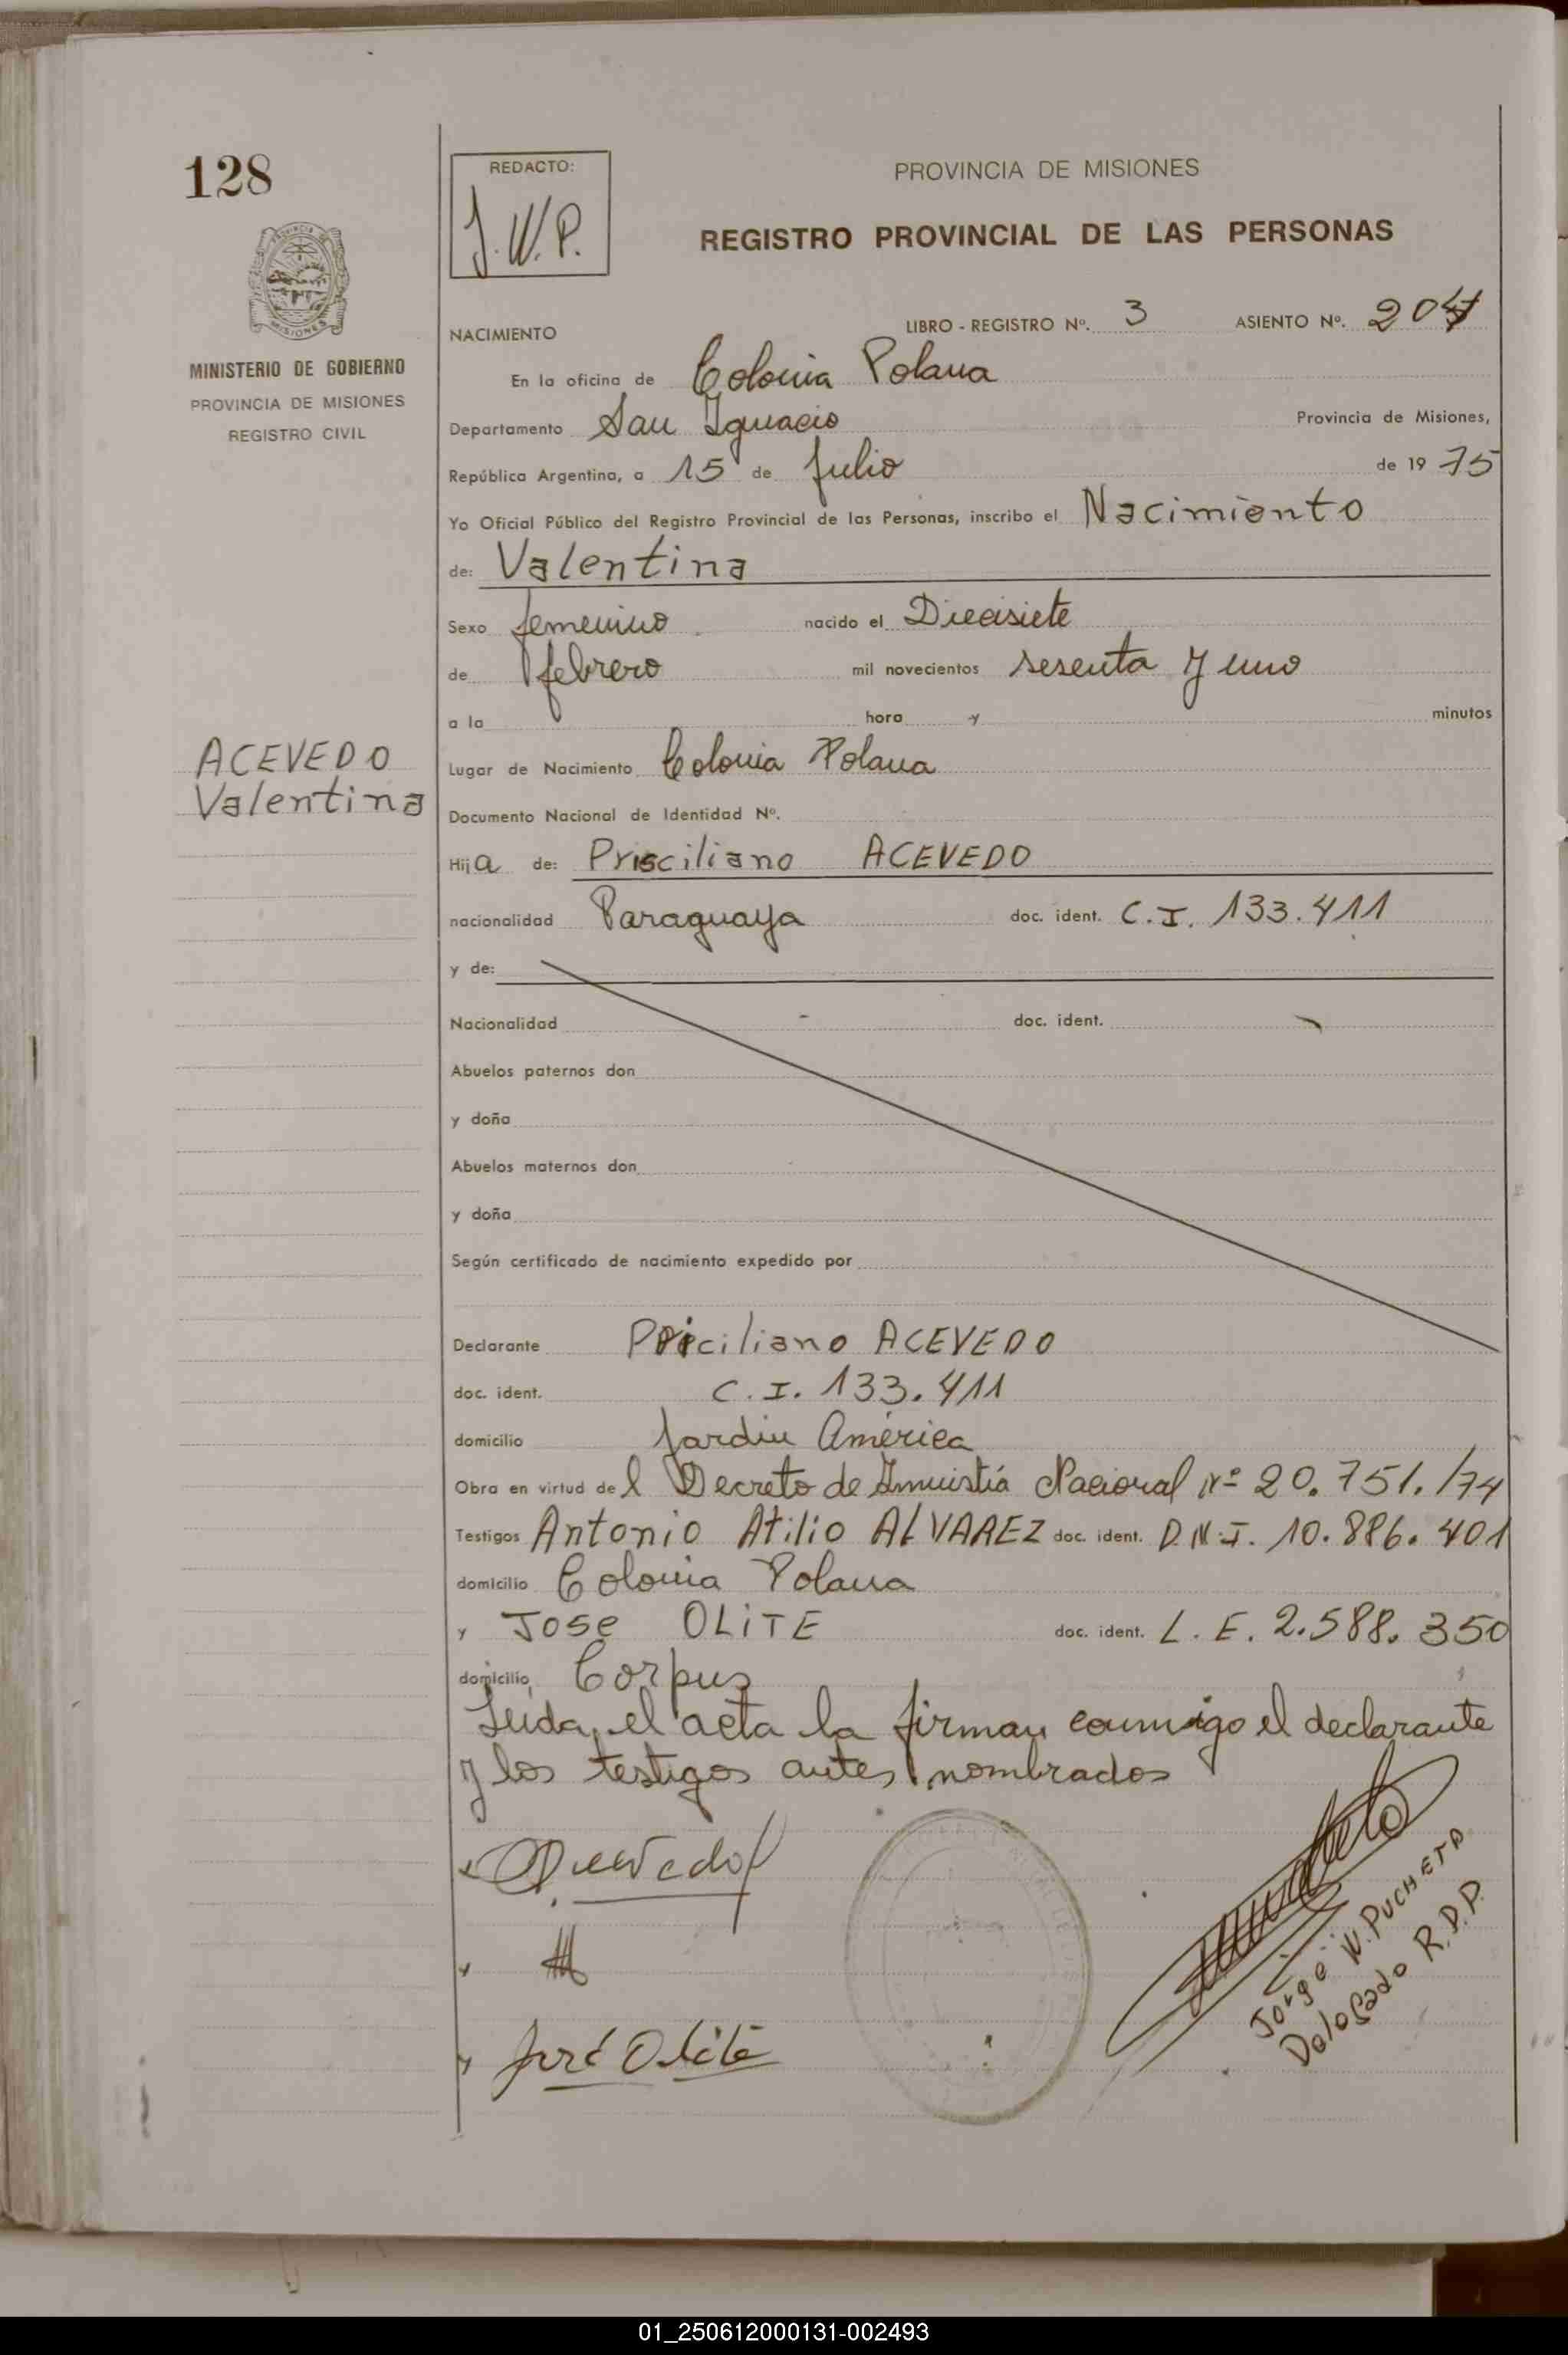 128
REDACTO:
J.W.P.
PROVINCIA DE MISIONES
REGISTRO PROVINCIAL DE LAS PERSONAS
MINISTERIO DE GOBIERNO
PROVINCIA DE MISIONES
REGISTRO CIVIL
NACIMIENTO LIBRO - REGISTRO Nº. 3 ASIENTO Nº.
En la oficina de Colonia Polana
Departamento San Ignacio Provincia de Misiones,
República Argentina, a 15 de Julio de 1975
Yo Oficial Público del Registro Provincial de las Personas, inscribo el Nacimiento
de: Valentina
Sexo femenino nacido el Diecisiete
de febrero mil novecientos sesenta y uno
a la hora y minutos
ACEVEDO
Valentina
Lugar de Nacimiento Colonia Polana
Documento Nacional de Identidad Nº.
Hija de: Prisciliano ACEVEDO
nacionalidad Paraguaya doc. ident. C.I. 133.411
y de:
Nacionalidad doc. ident.
Abuelos paternos don
y doña
Abuelos maternos don
y doña
Según certificado de nacimiento expedido por
Declarante Priciliano ACEVEDO
doc. ident. C.I. 133.411
domicilio Jardin América
Obra en virtud del Decreto de Amnistía Nacional Nº 20.751./74
Testigos Antonio Atilio ALVAREZ doc. ident. D.N.I. 10.886.401
domicilio Colonia Polana
y Jose OLITE doc. ident. L.E. 2.588.350
domicilio, Corpus
Leida el acta la firman conmigo el declarante
y los testigos antes nombrados
José Olité
Jorge W. PUCHETA
Delegado R.D.P.
01_250612000131-002493